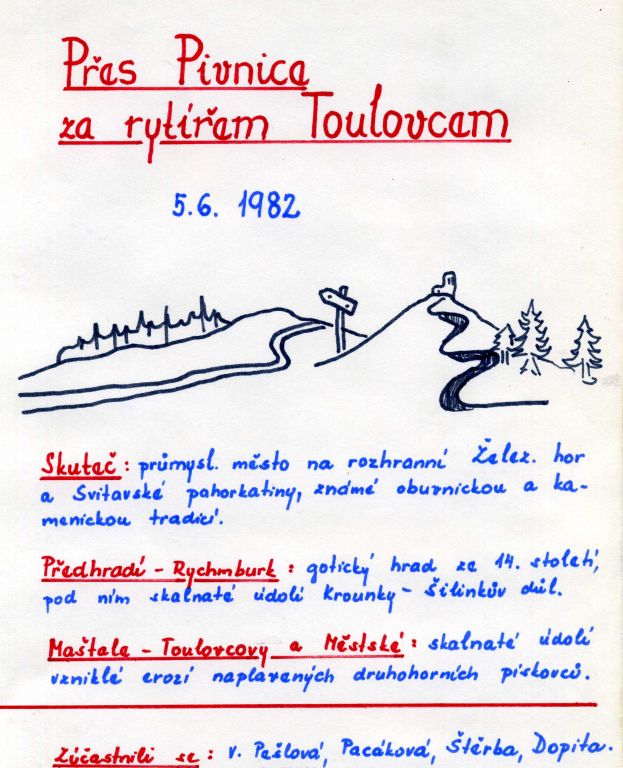 Přes Pivnica
za rytířem Toulovcem
5.6. 1982
Skuteč: průmysl. město na rozhranní Želez. hor
a Svitavské pahorkatiny, známé obuvnickou a ka-
menickou tradicí.
Předhradí - Rychmburk: gotický hrad ze 14. století,
pod ním skalnaté údolí Krounky - Šilinkův důl.
Maštale - Toulovcovy a Městské: skalnaté údolí
vzniklé erozí naplavených druhohorních pískovců.
Zúčastnili se: v. Pešlová, Pacáková, Štěrba, Dopita.